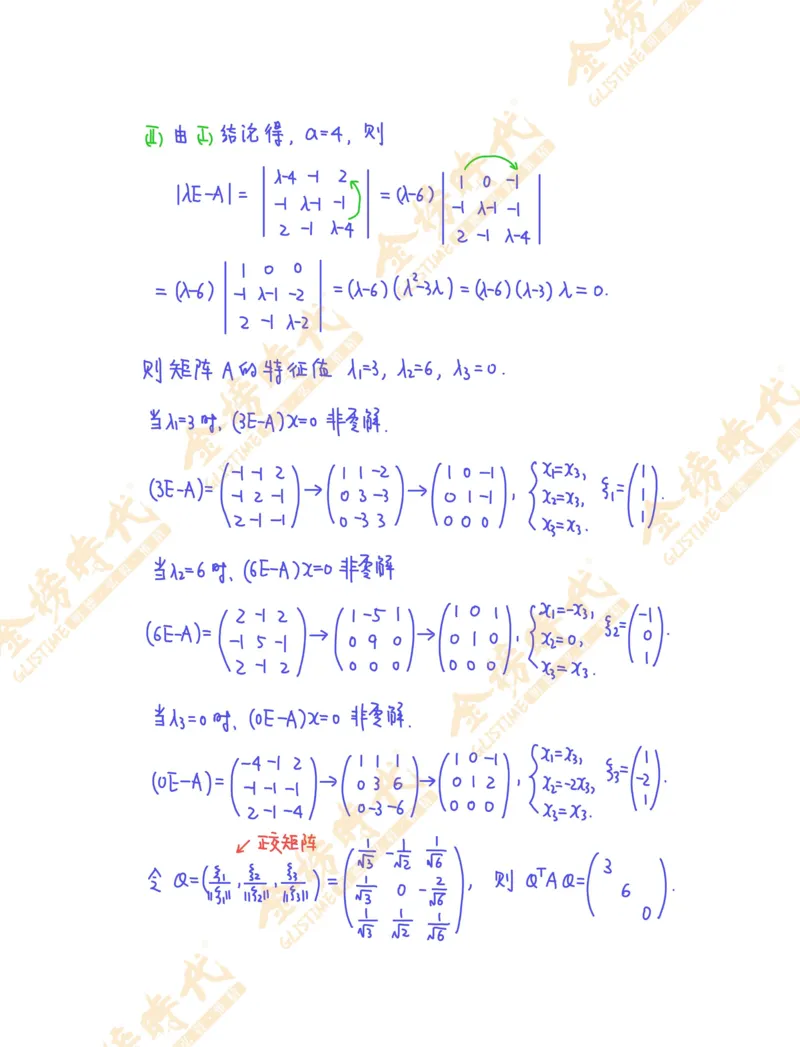 (Ⅱ) 由(Ⅰ)结论得, a=4, 则
|λE-A| = | λ-4 -1 2 ; -1 λ-1 -1 ; 2 -1 λ-4 | = (λ-6) | 1 0 -1 ; -1 λ-1 -1 ; 2 -1 λ-4 |
= (λ-6) | 1 0 0 ; -1 λ-1 -2 ; 2 -1 λ-2 | = (λ-6)(λ²-3λ) = (λ-6)(λ-3)λ = 0.
则矩阵A的特征值 λ₁=3, λ₂=6, λ₃=0.
当λ₁=3时, (3E-A)x=0 非零解.
(3E-A) = ( -1 -1 2 ; -1 2 -1 ; 2 -1 -1 ) → ( 1 1 -2 ; 0 3 -3 ; 0 -3 3 ) → ( 1 0 -1 ; 0 1 -1 ; 0 0 0 ), { x₁=x₃, x₂=x₃, x₃=x₃. ξ₁ = ( 1 ; 1 ; 1 ).
当λ₂=6时, (6E-A)x=0 非零解
(6E-A) = ( 2 -1 2 ; -1 5 -1 ; 2 -1 2 ) → ( 1 -5 1 ; 0 9 0 ; 0 0 0 ) → ( 1 0 1 ; 0 1 0 ; 0 0 0 ), { x₁=-x₃, x₂=0, x₃=x₃. ξ₂ = ( -1 ; 0 ; 1 ).
当λ₃=0时, (0E-A)x=0 非零解.
(0E-A) = ( -4 -1 2 ; -1 -1 -1 ; 2 -1 -4 ) → ( 1 1 1 ; 0 3 6 ; 0 -3 -6 ) → ( 1 0 -1 ; 0 1 2 ; 0 0 0 ), { x₁=x₃, x₂=-2x₃, x₃=x₃. ξ₃ = ( 1 ; -2 ; 1 ).
↙ 正交矩阵
令 Q = ( ξ₁/||ξ₁||, ξ₂/||ξ₂||, ξ₃/||ξ₃|| ) = ( 1/√3 -1/√2 1/√6 ; 1/√3 0 -2/√6 ; 1/√3 1/√2 1/√6 ), 则 QᵀAQ = ( 3 ; 6 ; 0 ).
金榜時代
GLISTIME